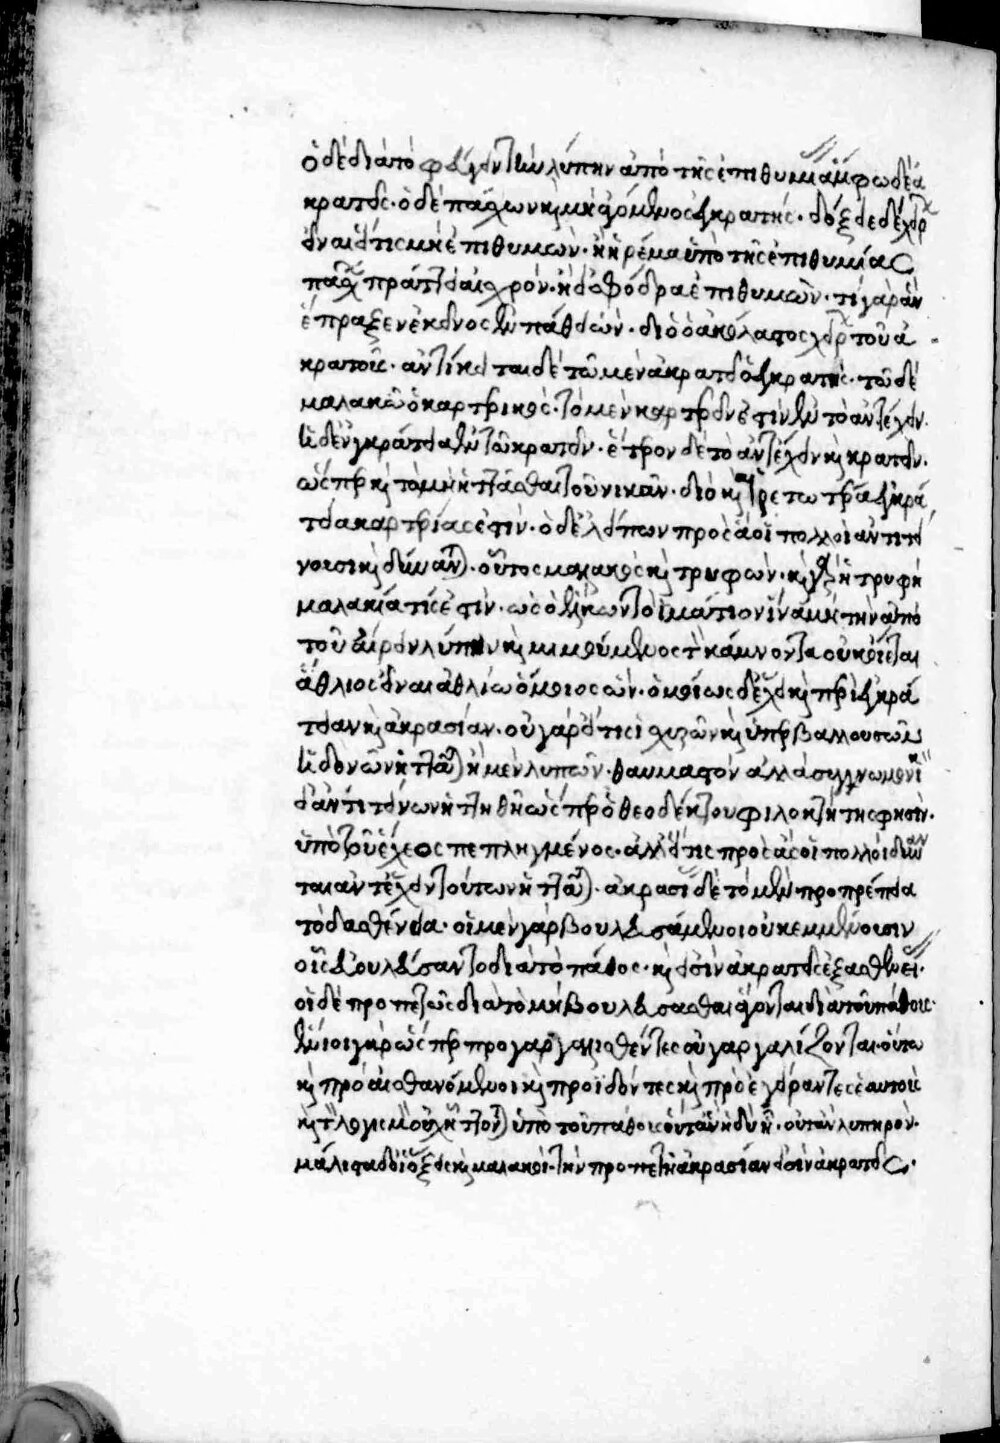 ὁ δὲ διὰ τὸ φεύγειν τὴν λύπην ἀπὸ τῆς ἐπιθυμι ἄμφω δὲ ἀ
κρατεῖς· ὁ δὲ πάσχων καὶ μὴ ἀγόμενος ἐγκρατής· δόξειε δὲ χεῖρ
εἶναι εἴ τις μὴ ἐπιθυμῶν· ἢ ἠρέμα ὑπὸ τῆς ἐπιθυμίας
πράττει αἰσχρόν· ἢ εἰ σφόδρα ἐπιθυμῶν· τί γὰρ ἂν
ἔπραξεν ἐκεῖνος ἐν πάθει ὤν· διὸ ὁ ἀκόλαστος χείρ τοῦ ἀ
κρατοῦς· ἀντίκειται δὲ τῷ μὲν ἀκρατεῖ ὁ ἐγκρατής· τῷ δὲ
μαλακῷ ὁ καρτερικός· τὸ μὲν καρτερεῖν ἐστὶν ἐν τῷ ἀντέχειν·
ἡ δ' ἐγκράτεια ἐν τῷ κρατεῖν· ἕτερον δὲ τὸ ἀντέχειν καὶ κρατεῖν·
ὥσπερ καὶ τὸ μὴ ἡττᾶσθαι τοῦ νικᾶν· διὸ καὶ αἱρετωτέρα ἐγκρά
τεια καρτερίας ἐστίν· ὁ δ' ἐλλείπων πρὸς ἃ οἱ πολλοὶ ἀντιτεί
νουσι καὶ δύνανται· οὗτος μαλακὸς καὶ τρυφῶν· καὶ γὰρ ἡ τρυφὴ
μαλακία τίς ἐστιν· ὡς ὁ ἕλκων τὸ ἱμάτιον ἵνα μὴ τὴν ἀπὸ
τοῦ αἴρειν λύπην καὶ μιμούμενος τὸν κάμνοντα οὐκ οἴεται
ἄθλιος εἶναι ἀθλίῳ ὅμοιος ὤν· ὁμοίως δ' ἔχει καὶ περὶ ἐγκρά
τειαν καὶ ἀκρασίαν· οὐ γὰρ εἴ τις ἰσχυρῶν καὶ ὑπερβαλλουσῶν
ἡδονῶν ἡττᾶται ἢ μὲν λυπῶν· θαυμαστόν ἀλλὰ συγγνωμονικ
εἰ ἀντιτείνων ἡττηθῇ ὥσπερ ὁ θεοδέκτου φιλοκτήτης φησὶν·
ὑπὸ τοῦ ἔχεος πεπληγμένος· ἀλλ' εἴ τις πρὸς ἃς οἱ πολλοὶ δύναν
ται ἀντέχειν τούτων ἡττᾶται· ἀκρασί δὲ τὸ μὲν προπέτεια
τὸ δ' ἀσθένεια· οἱ μὲν γὰρ βουλευσάμενοι οὐκ ἐμμένουσιν
οἷς ἐβουλεύσαντο διὰ τὸ πάθος· καὶ εἰσὶν ἀκρατεῖς ἐξ ἀσθενεί·
οἱ δὲ προπετῶς διὰ τὸ μὴ βουλεύσασθαι ἄγονται διὰ τοῦ πάθους·
ἔνιοι γὰρ ὥσπερ προγαργαλισθέντες οὐ γαργαλίζονται· οὕτω
καὶ προαισθανόμενοι καὶ προϊδόντες καὶ προεγείραντες ἑαυτοὺς
καὶ τὸν λογισμὸν οὐχ ἡττῶνται ὑπὸ τοῦ πάθους οὔτ' ἂν ἡδὺ ᾖ· οὔτ' ἂν λυπηρόν·
μάλιστα δ' οἱ ὀξεῖς καὶ μαλακοί· τὴν προπετῆ ἀκρασίαν εἰσὶν ἀκρατεῖς·